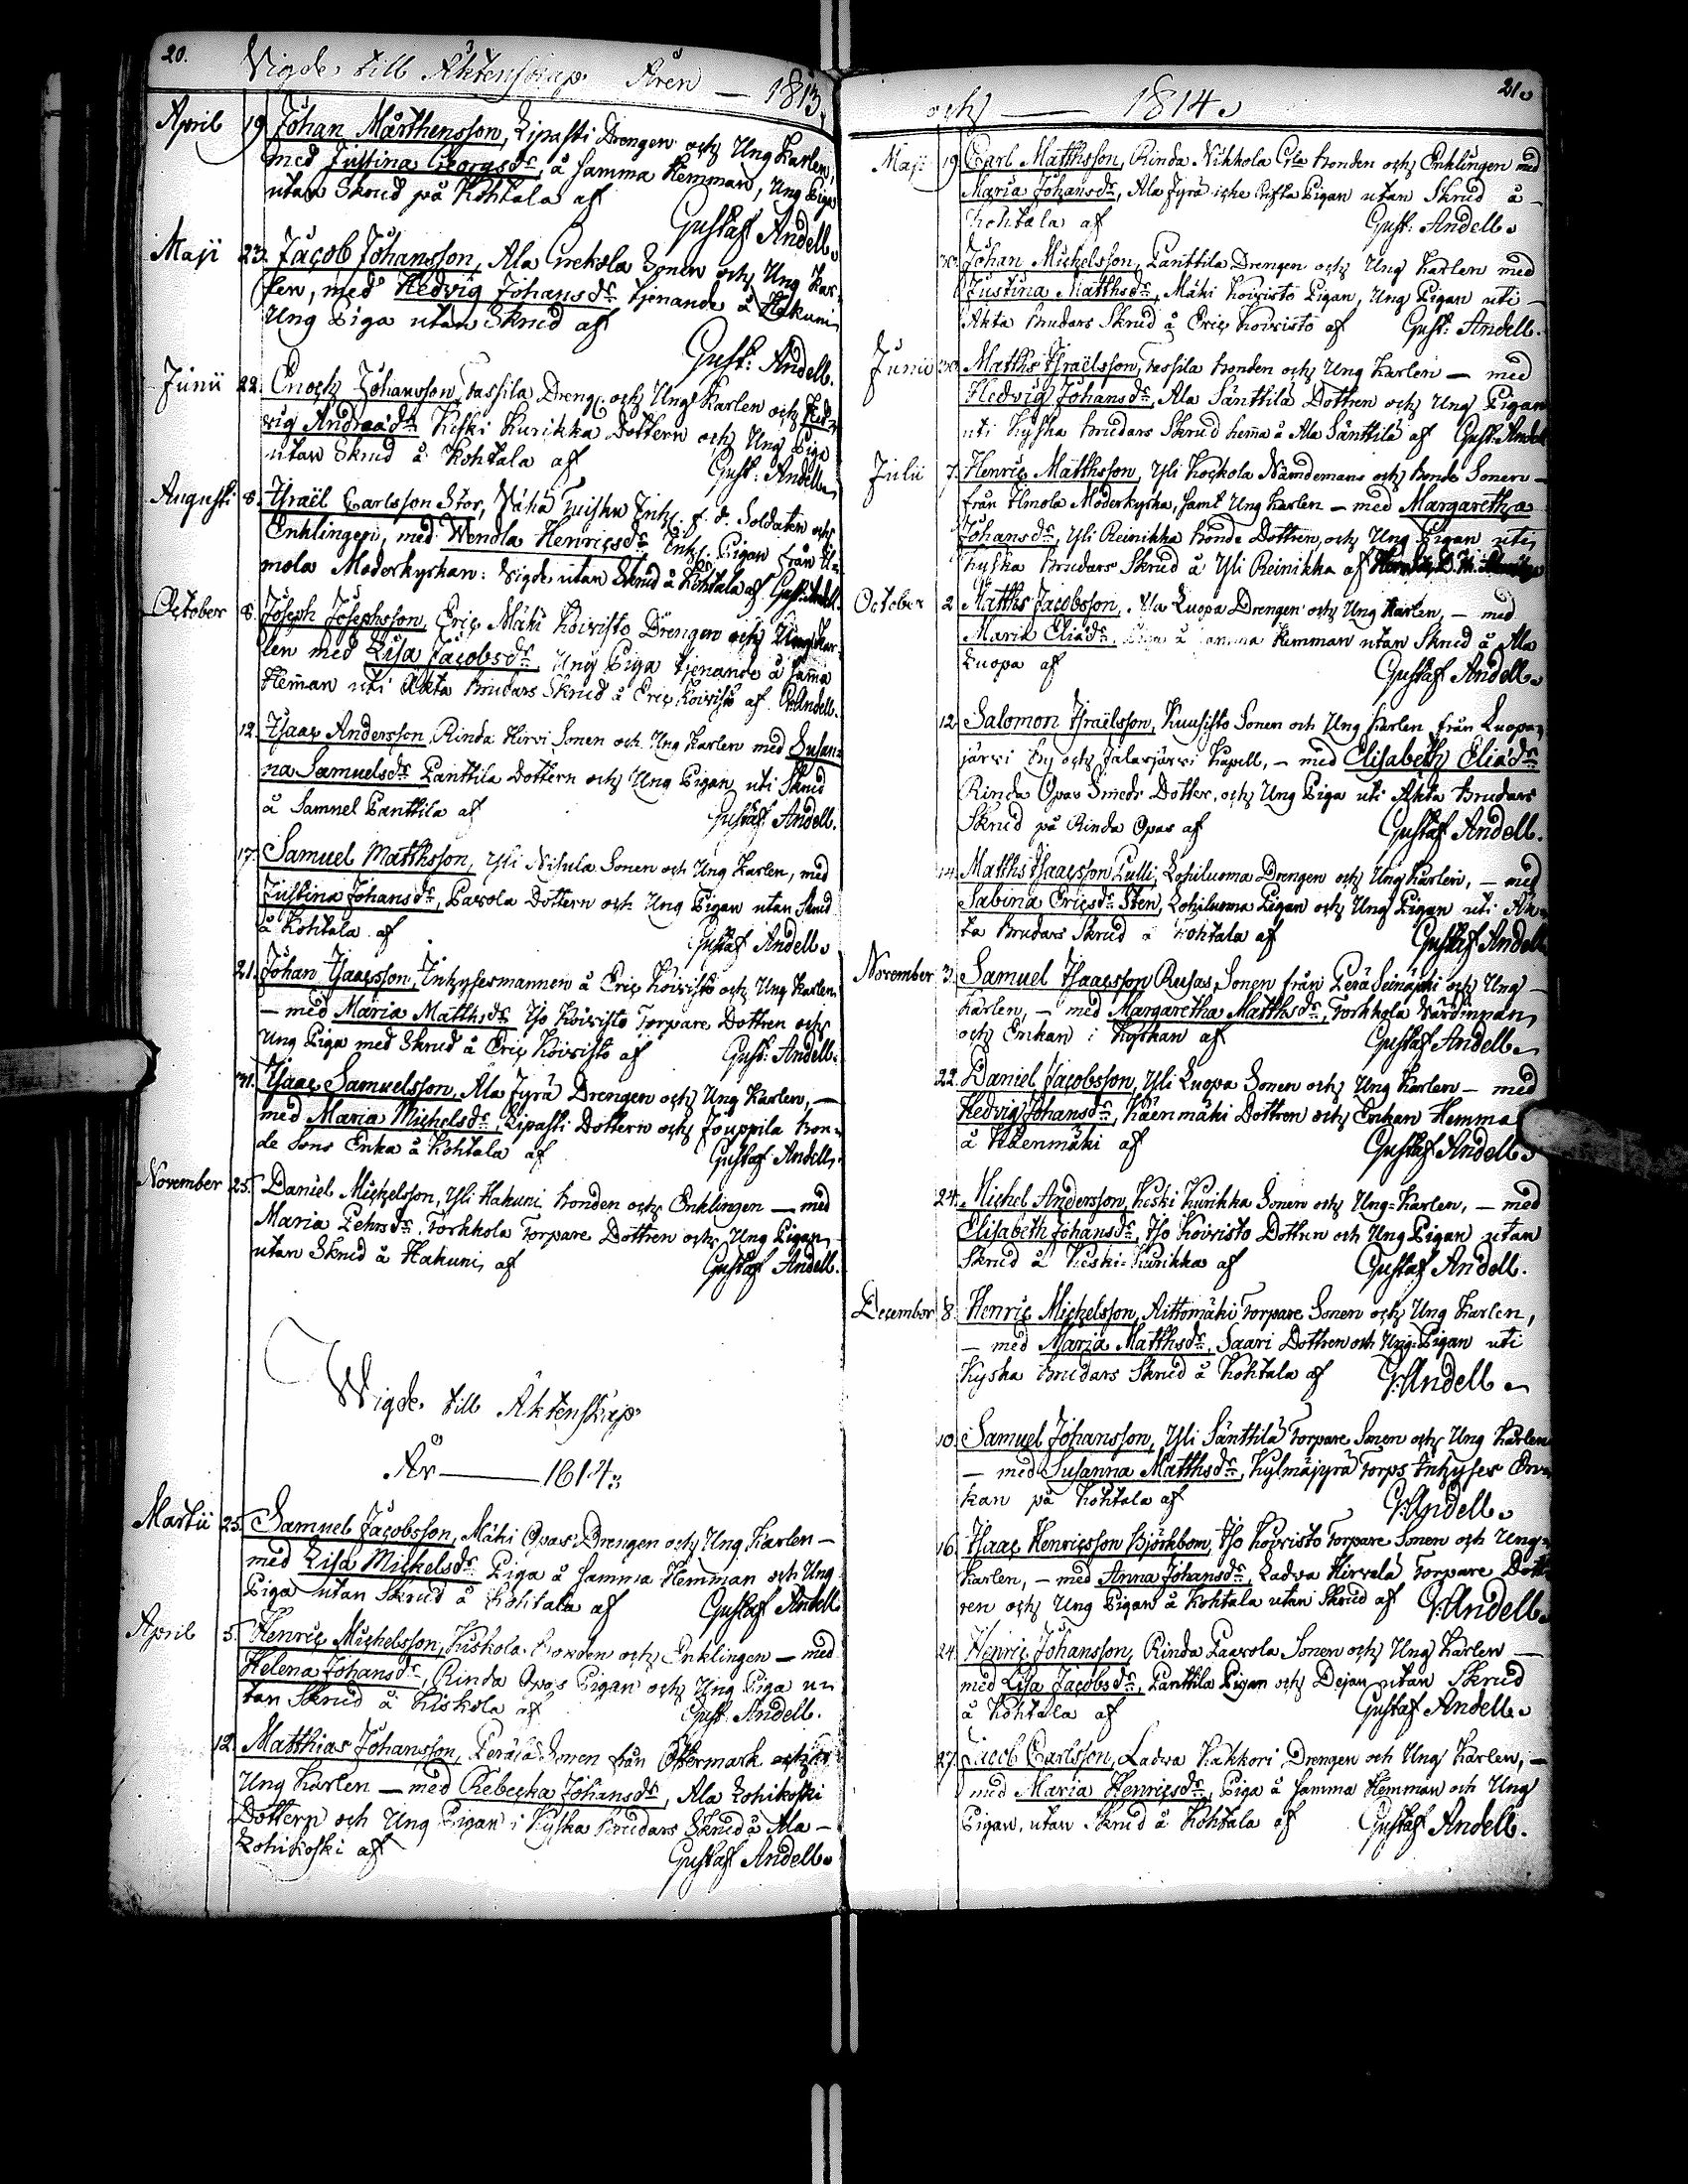 20.
Vigde till Äktenskap Åren — 1813.
April 19. Johan Mårthensson, Lipasti Drengen och Ung Karlen,
med Justina Georgsdr, å samma Hemman, Ung Piga
utan Skrud på Kohtala af
Gustaf Andell.
Maji 23. Jacob Johansson, Ala Sonen och Ung Kar-
len, med Hedvig Johansdr tjenande å Hakuni
Ung Piga utan Skrud af
Gust: Andell.
Junii 22. Enoch Johansson, Tassila Dreng och Ung Karlen och Hed-
vig Andreædr Kiski Kurikka Dottern och Ung Piga
utan Skrud å Kohtala af
Gust: Andell.
Augusti 8. Israël Carlsson Stor, Tuisku Inh. f. d. Soldaten och
Enklingen, med Wendla Henricsdr Inh. Pigan från Il-
mola Moderkyrkan: Vigde utan Skrud å Kohtala af Gust: Andel.
October 8. Joseph Josephsson, Eric Mäki Koivisto Drengen och Ung Kar-
len med Lisa Jacobsdr Ung Piga tjenande å samma
Hemman uti Äkta Brudars Skrud å Eric Koivisto af G: Andell.
12. Isaac Andersson Rinda Hirvi Sonen och Ung Karlen med Susan-
na Samuelsdr Panttila Dottern och Ung Pigan uti Skrud
å Samuel Panttila af
Gustaf Andell.
17. Samuel Matthsson, Yli Nisula Sonen och Ung Karlen, med
Justina Johansdr, Pavola Dottern och Ung Pigan utan Skrud
å Kohtala af
Gustaf Andell.
21. Johan Isacsson, Inhysesmannen å Eric Koivisto och Ung Karlen
— med Maria Matthsdr Iso Koivisto Torpare Dottren och
Ung Piga med Skrud å Eric Koivisto af
Gust: Andell.
31. Isaac Samuelsson, Ala Jyrä Drengen och Ung Karlen, —
med Maria Michelsdr, Lipasti Dottern och Jouppila Bon-
de Sons Enka å Kohtala af
Gustaf Andell.
November 25. Daniel Michelsson, Yli Hakuni Bonden och Enklingen — med
Maria Pehrsdr, Torkkola Torpare Dottren och Ung Pigan,
utan Skrud å Hakuni af
Gustaf Andell.
Wigde till Äktenskap
År — 1814.
Martii 25. Samuel Jacobsson, Mäki Opas Drengen och Ung Karlen —
med Lisa Mickelsdr Piga å samma Hemman och Ung
Piga utan Skrud å Kohtala af
Gustaf Andell.
April 5. Henric Michelsson, Kiskola Bonden och Enklingen — med
Helena Johansdr, Rinda Opas Pigan och Ung Piga u-
tan Skrud å Kiskola af
Gust. Andell.
12. Matthias Johansson, Perälä Sonen från Östermark och
Ung Karlen — med Rebecka Johansdr, Ala Lohikoski
Dottern och Ung Pigan i Kyska Brudars Skrud å Ala —
Lohikoski af
Gustaf Andell.
21.
och — 1814.
Maji 19. Carl Matthsson, Rinda Nikkola Bonden och Enklingen med
Maria Johansdr, Ala Jyrä icke Gifta Pigan utan Skrud å —
Kohtala af
Gust: Andell.
30. Johan Michelsson, Panttila Drengen och Ung Karlen med
Justina Matthsdr, Mäki Koivisto Pigan, Ung Pigan uti —
Äkta Brudars Skrud å Eric Koivisto af
Gust: Andell.
Junii 30. Matths Israëlsson, Bonden och Ung Karlen — med
Hedvig Johansdr, Ala Sänttilä Dottren och Ung Pigan
uti Kyska Brudars Skrud hema å Ala Sänttilä af Gust: Andell
Julii 7. Henric Matthsson, Yli Kockola Nämdemans och Bonde Sonen —
från Ilmola Moderkyrka, samt Ung Karlen — med Margaretha
Johansdr, Yli Reinikka Bonde Dottren, och Ung Pigan uti
Kyska Brudars Skrud å Yli Reinikka af
October 2. Matths Jacobsson, Ala Luopa Drengen och Ung Karlen, — med
Maria Eliædr å samma Hemman utan Skrud å Ala
Luopa af
Gustaf Andell.
12. Salomon Israëlsson, Kuusisto Sonen och Ung Karlen från Luopa
järvi By och Jalasjärvi Kapell, — med Elisabeth Eliædr
Rinda Opas Smeds Dotter, och Ung Piga uti Äkta Brudars
Skrud på Rinda Opas af
Gustaf Andell.
14. Matths Isaacsson Lulli, Lohiluoma Drengen och Ung Karlen, — med
Sabina Ericsdr Sten, Lohiluoma Pigan och Ung Pigan uti Äk-
ta Brudars Skrud å Kohtala af
Gustaf Andell
November 3. Samuel Isaacsson Rusas, Sonen från Perä Seinäjoki och Ung —
Karlen, — med Margaretha Matthsdr, Torkkola Värdinnan
och Enkan i Kyrkan af
Gustaf Andell.
22. Daniel Jacobsson, Yli Luopa Sonen och Ung Karlen — med
Hedvig Johansdr, Käenmäki Dottren och Enkan Hemma
å Käenmäki af
Gustaf Andell.
24. Michel Andersson, Keski Kurikka Sonen och Ung-Karlen, — med
Elisabeth Johansdr, Iso Koivisto Dottren och Ung Pigan utan
Skrud å Keski-Kurikka af
Gustaf Andell.
December 8. Henric Michelsson, Aittomäki Torpare Sonen och Ung Karlen,
— med Maria Matthsdr, Saari Dottren och Ung-Pigan uti
Kyska Brudars Skrud å Kohtala af
G: Andell.
10. Samuel Johansson, Yli Sänttilä Torpare Sonen och Ung Karlen
— med Susanna Matthsdr, Kylmäjyrä Torps Inhyses
kan på Kohtala af
G: Andell.
16. Isaac Henricsson Björkbom, Iso Koivisto Torpare Sonen och Ung-
Karlen, — med Anna Johansdr, Ladva Hirvelä Torpare Dott-
ren och Ung Pigan å Kohtala utan Skrud af
G: Andell.
24. Henric Johansson, Rinda Paavola Sonen och Ung Karlen —
med Lisa Jacobsdr, Panttila Pigan och Dejan utan Skrud
å Kohtala af
Gustaf Andell.
27. Jacob Carlsson, Ladva Kakkori Drengen och Ung Karlen, —
med Maria Henricsdr, Piga å samma Hemman och Ung
Pigan, utan Skrud å Kohtala af
Gustaf Andell.